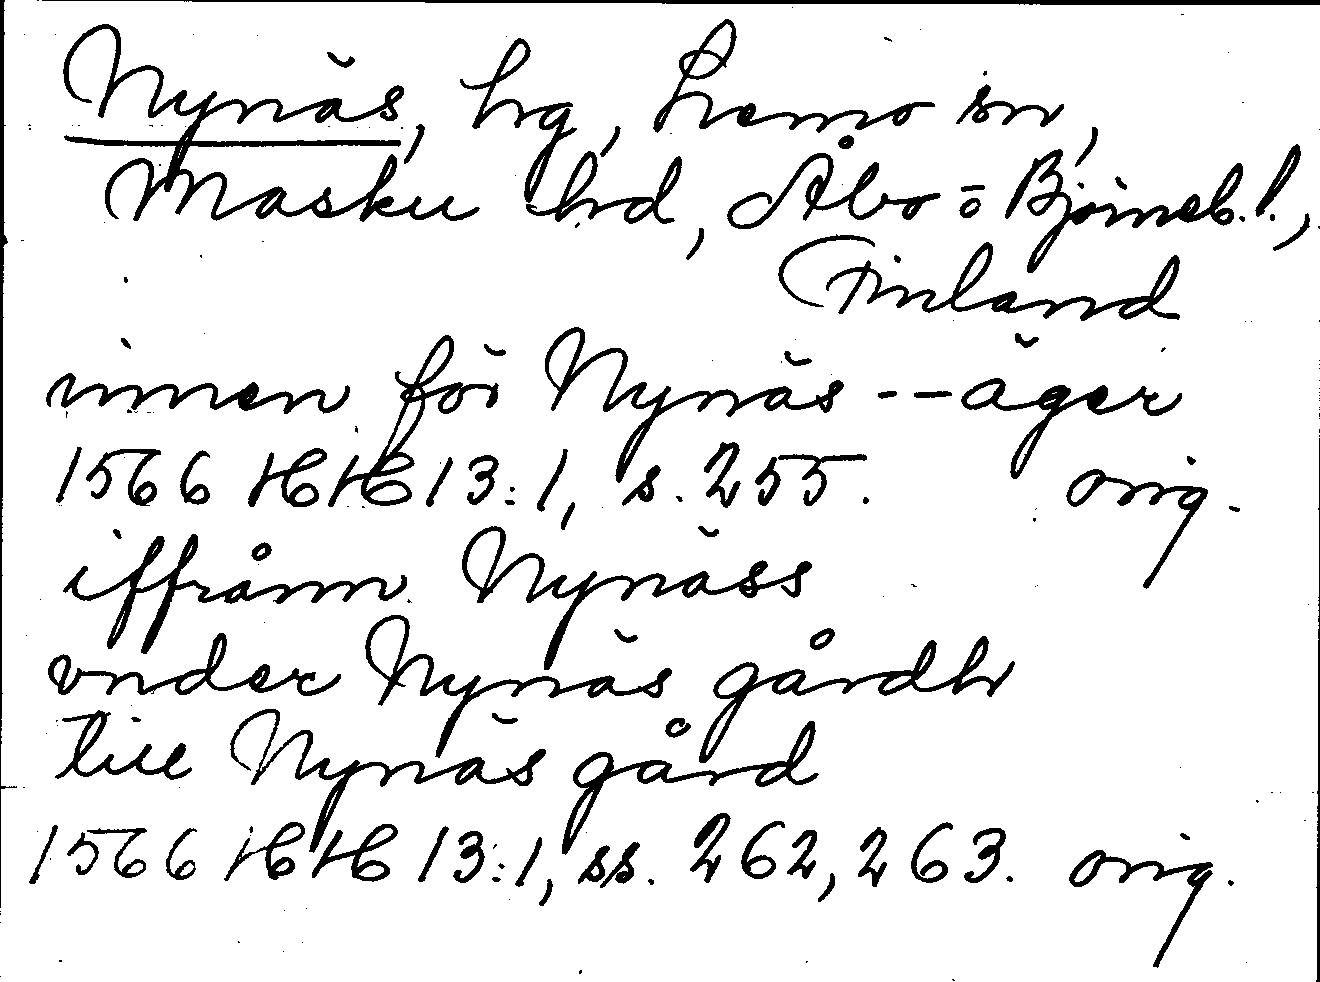 Nynäs, hg, Lemo sn,
Masku hd, Åbo o Björneb. l.,
Finland
innen för Nynäs -- äger
1566 HH 13:1, s. 255. orig.
iffrånn Nynäss
vnder Nynäs gårdh
till Nynäs gård
1566 HH 13:1, ss. 262, 263. orig.